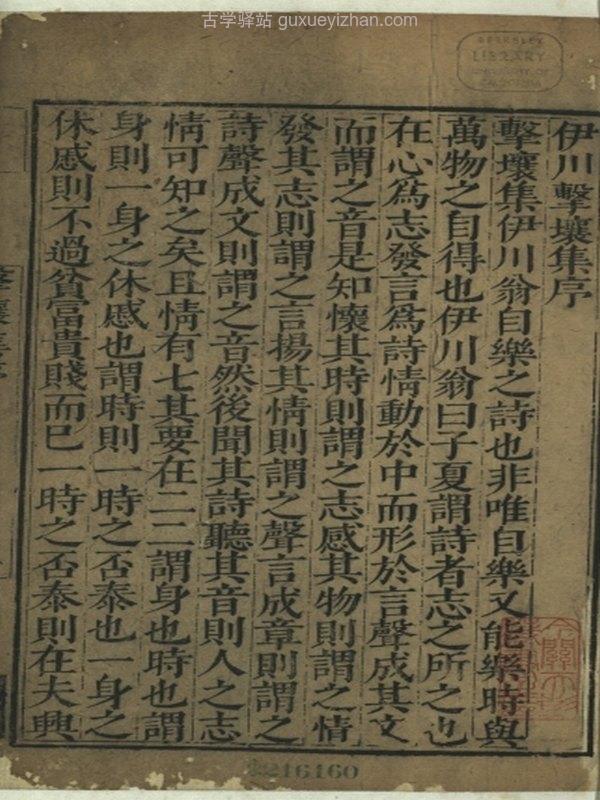 古学驿站 guxueyizhan.com
BERKELEY
LIBRARY
UNIVERSITY OF
CALIFORNIA
伊川擊壤集序
擊壤集伊川翁自樂之詩也非唯自樂又能樂時與
萬物之自得也伊川翁曰子夏謂詩者志之所之也
在心為志發言為詩情動於中而形於言聲成其文
而謂之音是知懷其時則謂之志感其物則謂之情
發其志則謂之言揚其情則謂之聲言成章則謂之
詩聲成文則謂之音然後聞其詩聽其音則人之志
情可知之矣且情有七其要在二二謂身也時也謂
身則一身之休慼也謂時則一時之否泰也一身之
休慼則不過貧富貴賤而已一時之否泰則在夫興
216160